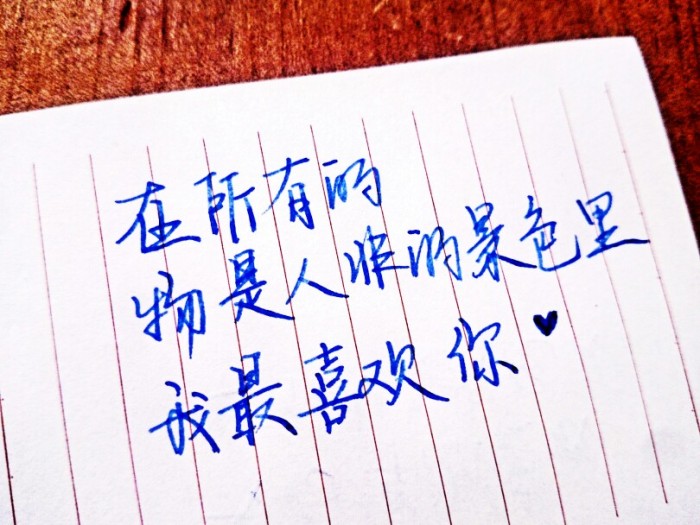 在所有的
物是人非的景色里
我最喜欢你